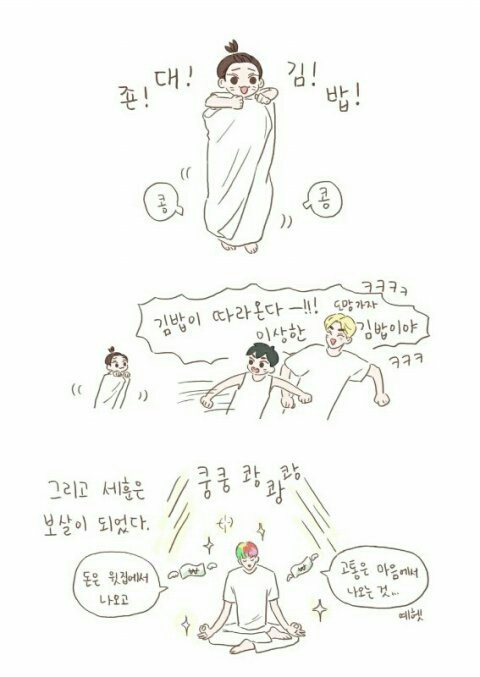 존! 대! 김! 밥!
콩
콩
김밥이 따라온다—!!!
ㅋㅋㅋㅋ
도망가자
이상한 김밥이야
ㅋㅋㅋ
그리고 세훈은
보살이 되었다.
쿵쿵 쾅쾅쾅
돈은 윗집에서
나오고
고통은 마음에서
나오는 것...
예헷